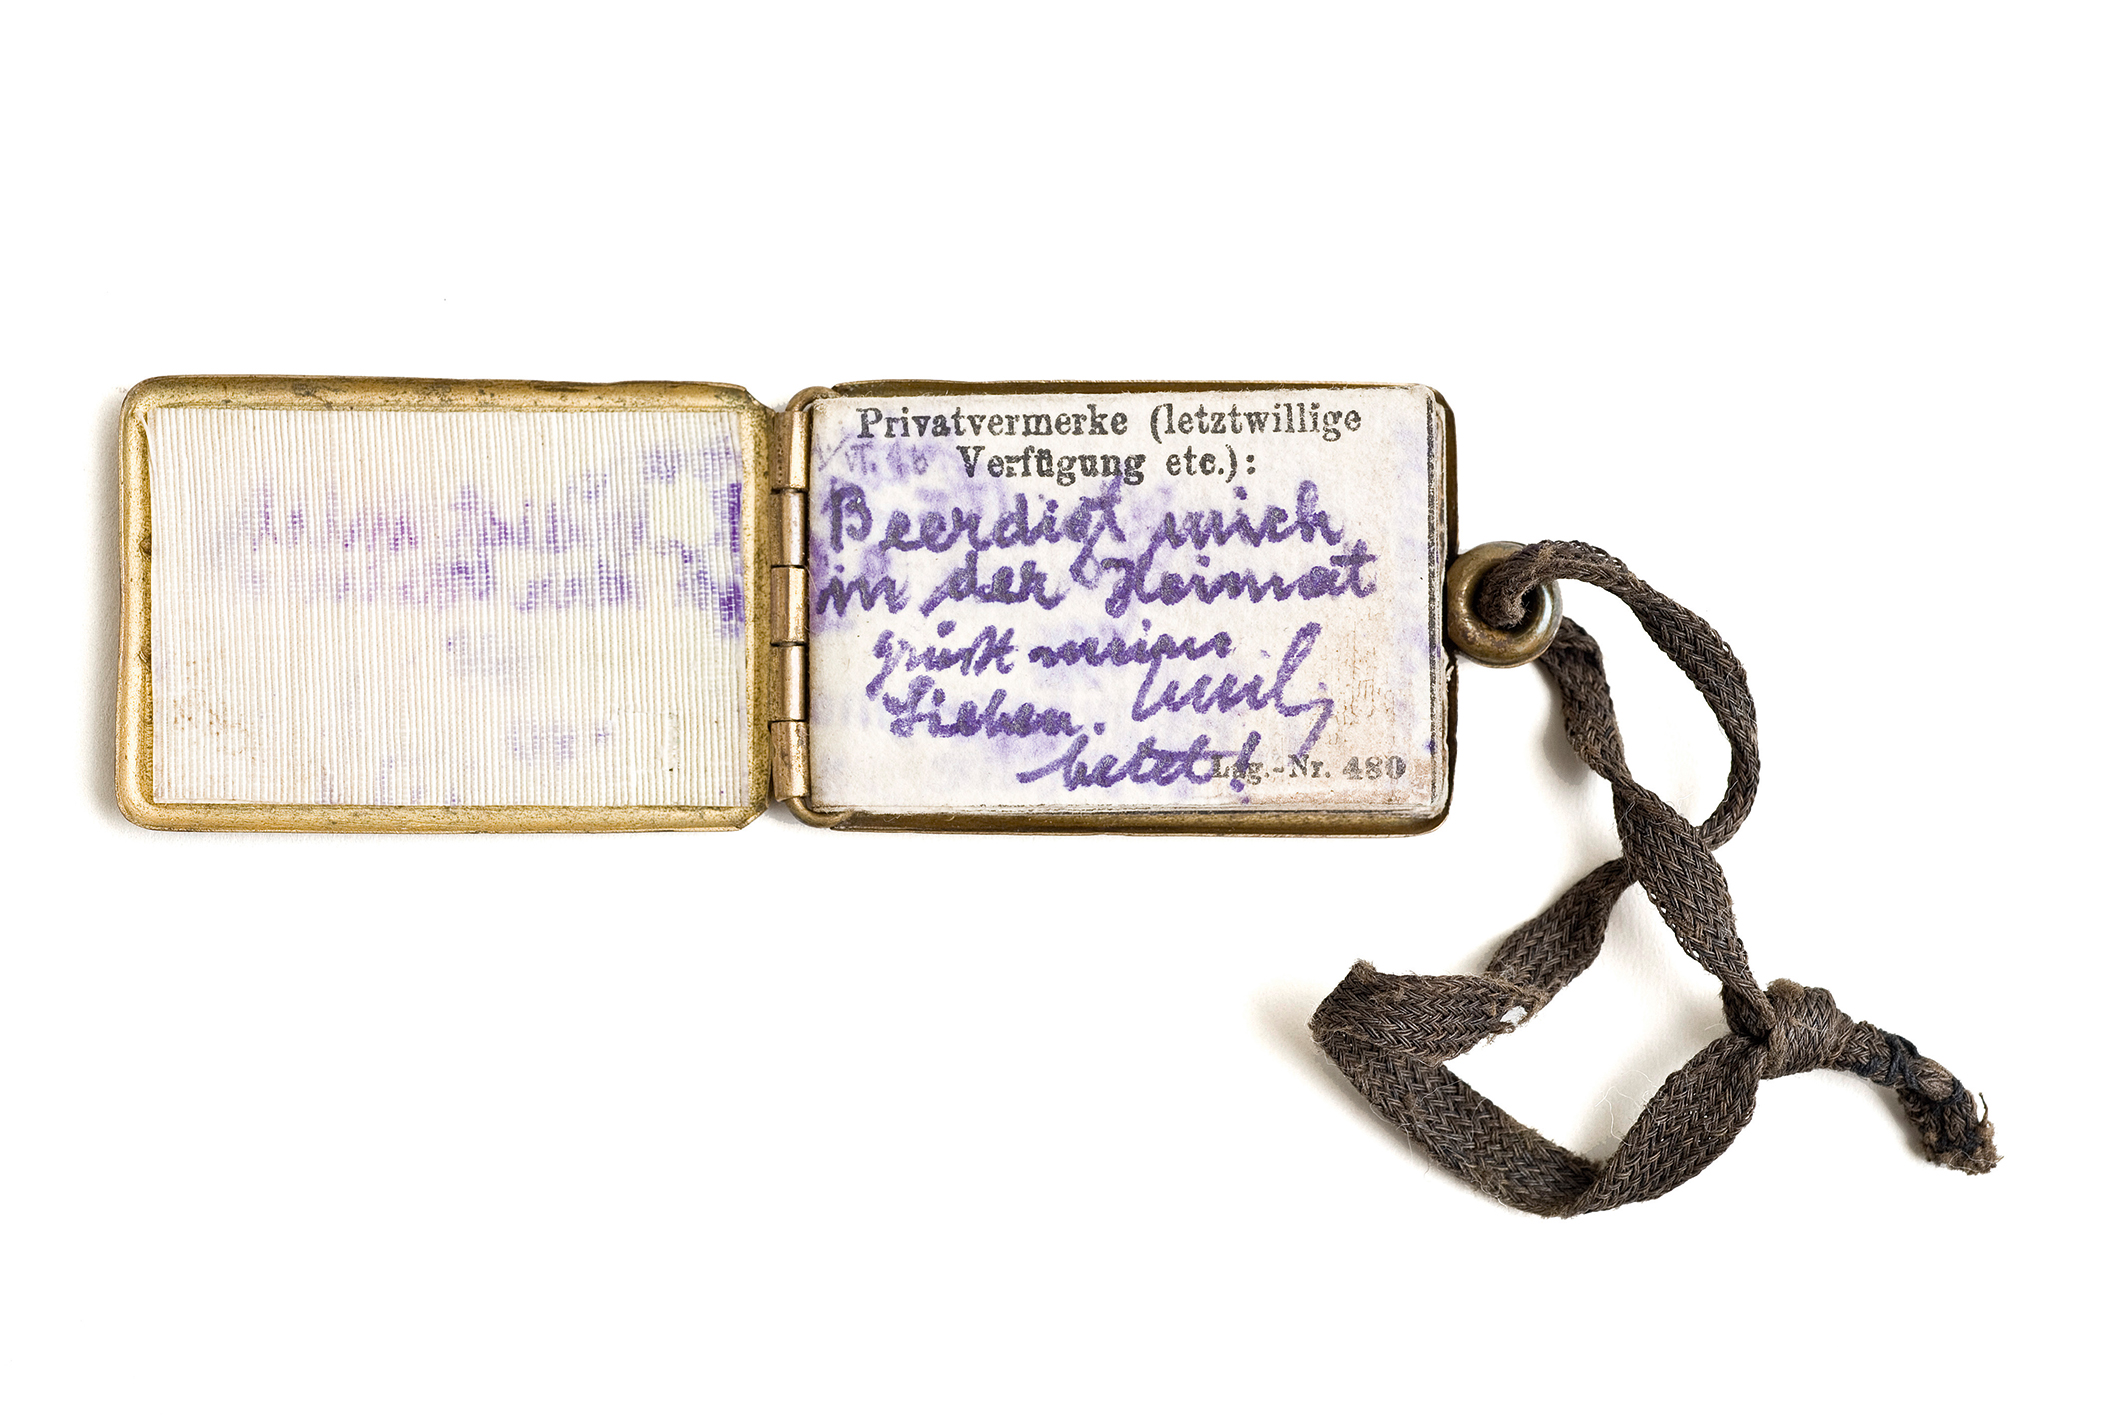 Privatvermerke (letztwillige
Verfügung etc.):
Beerdigt mich
in der Heimat
grüßt meine
Lieben.
betet!
Lag.-Nr. 480